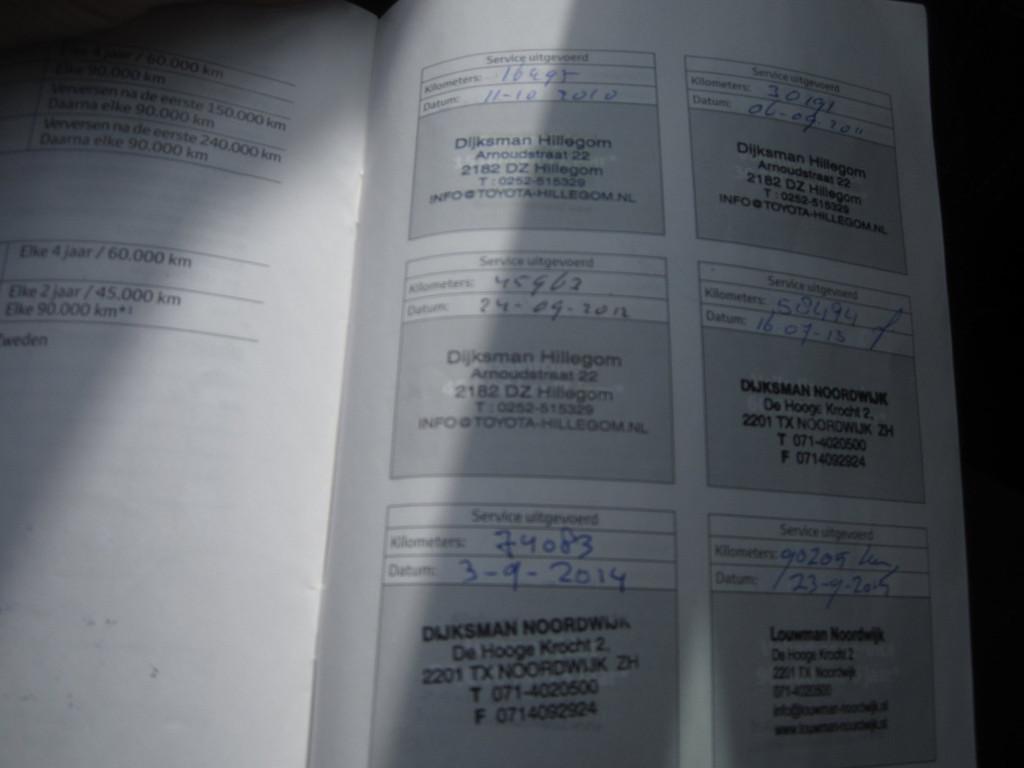 Elke 4 jaar / 60.000 km
Elke 90.000 km
Verversen na de eerste 150.000 km
Daarna elke 90.000 km
Verversen na de eerste 240.000 km
Daarna elke 90.000 km
Elke 4 jaar / 60.000 km
Elke 2 jaar / 45.000 km
Elke 90.000 km*³
Zweden
Service uitgevoerd
Kilometers: 16495
Datum: 11-10 2010
Dijksman Hillegom
Arnoudstraat 22
2182 DZ Hillegom
T : 0252-515329
INFO@TOYOTA-HILLEGOM.NL
Service uitgevoerd
Kilometers: 30191
Datum: 06-09-2011
Dijksman Hillegom
Arnoudstraat 22
2182 DZ Hillegom
T : 0252-515329
INFO@TOYOTA-HILLEGOM.NL
Service uitgevoerd
Kilometers: 45963
Datum: 24-09-2012
Dijksman Hillegom
Arnoudstraat 22
2182 DZ Hillegom
T : 0252-515329
INFO@TOYOTA-HILLEGOM.NL
Service uitgevoerd
Kilometers: 58494
Datum: 16-07-13
DIJKSMAN NOORDWIJK
De Hooge Krocht 2,
2201 TX NOORDWIJK ZH
T 071-4020500
F 0714092924
Service uitgevoerd
Kilometers: 74083
Datum: 3-9-2014
DIJKSMAN NOORDWIJK
De Hooge Krocht 2,
2201 TX NOORDWIJK ZH
T 071-4020500
F 0714092924
Service uitgevoerd
Kilometers: 90205 km
Datum: 23-9-2015
Louwman Noordwijk
De Hooge Krocht 2
2201 TX Noordwijk
071-4020500
info@louwman-noordwijk.nl
www.louwman-noordwijk.nl